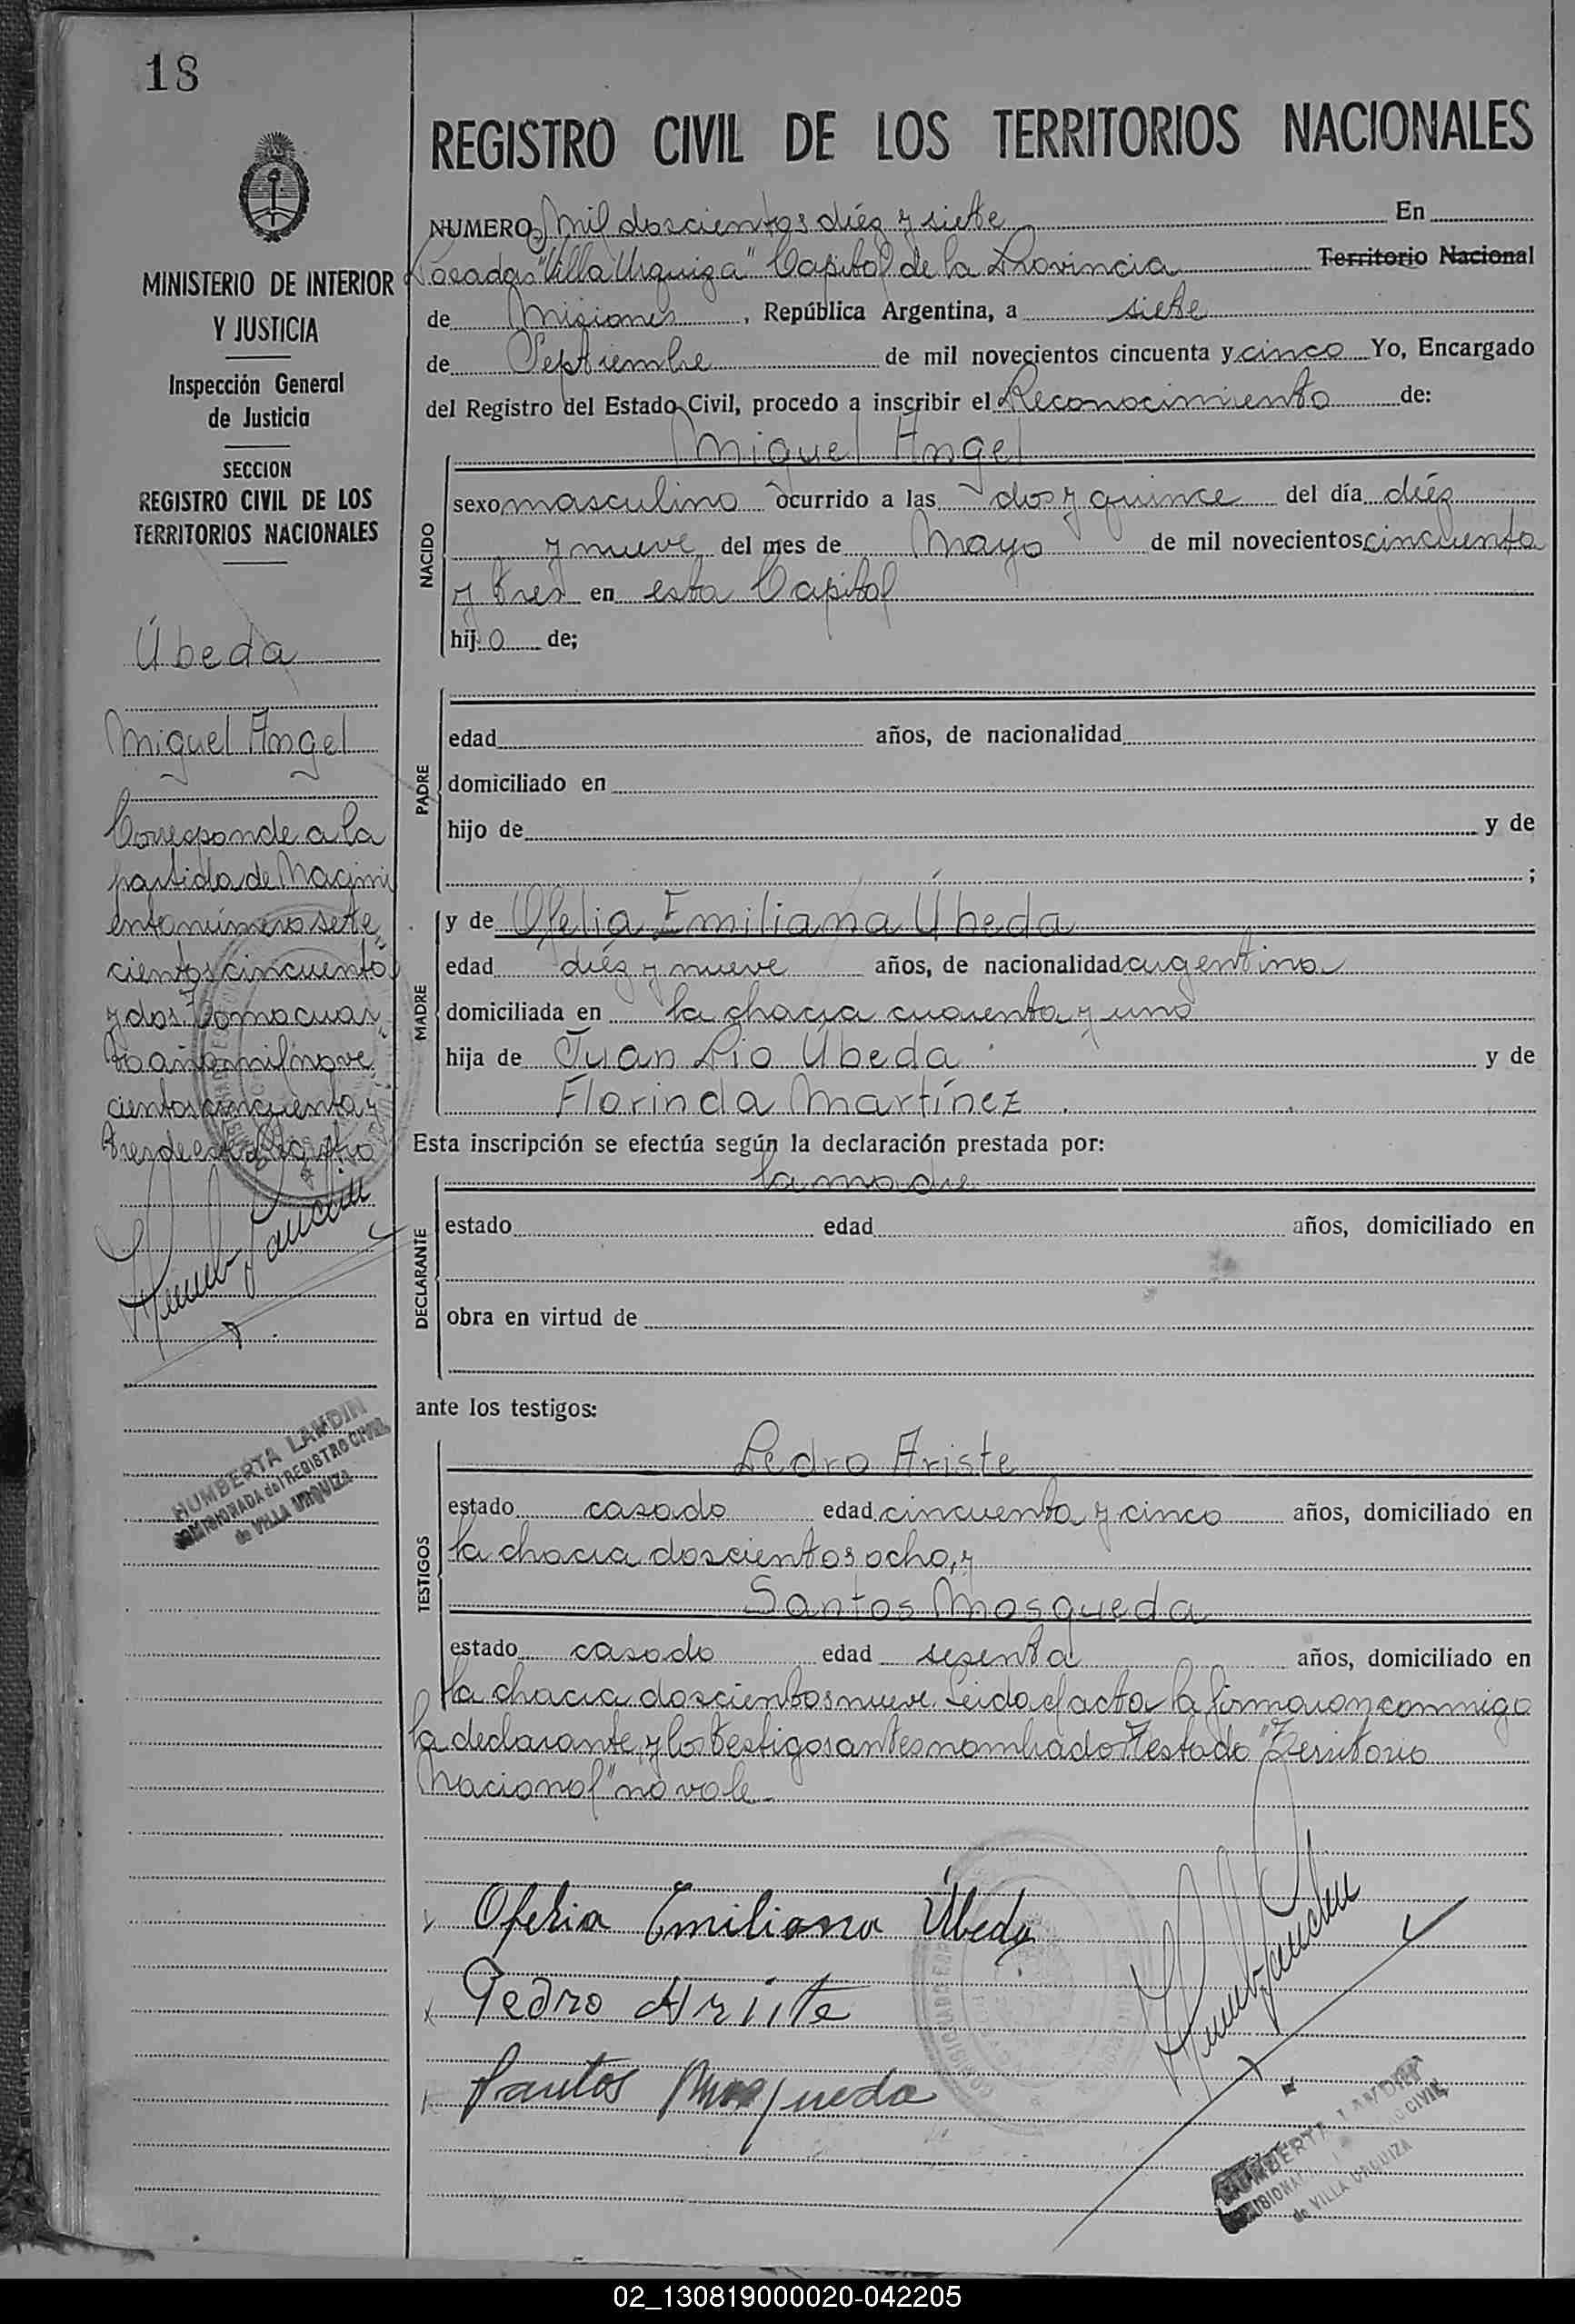 18
REGISTRO CIVIL DE LOS TERRITORIOS NACIONALES
MINISTERIO DE INTERIOR
Y JUSTICIA
Inspección General
de Justicia
SECCION
REGISTRO CIVIL DE LOS
TERRITORIOS NACIONALES
Úbeda
Miguel Angel
Corresponde a la
partida de Nacimi
ento número sete
cientos cincuenta
y dos Tomo cua
tro año mil nove
cientos cincuenta y
tres de este Registro
HUMBERTA LANDIN
COMISIONADA del REGISTRO CIVIL
de VILLA URQUIZA
NUMERO Mil doscientos diéz y siete En
Posadas "Villa Urquiza" Capital de la Provincia Territorio Nacional
de Misiones, República Argentina, a siete
de Septiembre de mil novecientos cincuenta y cinco Yo, Encargado
del Registro del Estado Civil, procedo a inscribir el Reconocimiento de:
Miguel Angel
NACIDO
sexo masculino ocurrido a las dos y quince del día diéz
y nueve del mes de Mayo de mil novecientos cincuenta
y tres en esta Capital
hijo de;
PADRE
edad años, de nacionalidad
domiciliado en
hijo de y de
;
MADRE
y de Ofelia Emiliana Úbeda
edad diéz y nueve años, de nacionalidad argentina
domiciliada en la chacra cuarenta y uno
hija de Juan Pio Úbeda y de
Florinda Martínez
Esta inscripción se efectúa según la declaración prestada por:
la madre
DECLARANTE
estado edad años, domiciliado en
obra en virtud de
ante los testigos:
TESTIGOS
Pedro Ariste
estado casado edad cincuenta y cinco años, domiciliado en
la chacra doscientos ocho, y
Santos Mosqueda
estado casado edad sesenta años, domiciliado en
la chacra doscientos nueve. Leida el acta la firmaron conmigo
la declarante y los testigos antes nombrados Testado "Territorio
Nacional" no vale
Ofelia Emiliana Úbeda
Pedro Ariste
Santos Mosqueda
HUMBERTA LANDIN
CIVIL
de VILLA URQUIZA
02_130819000020-042205